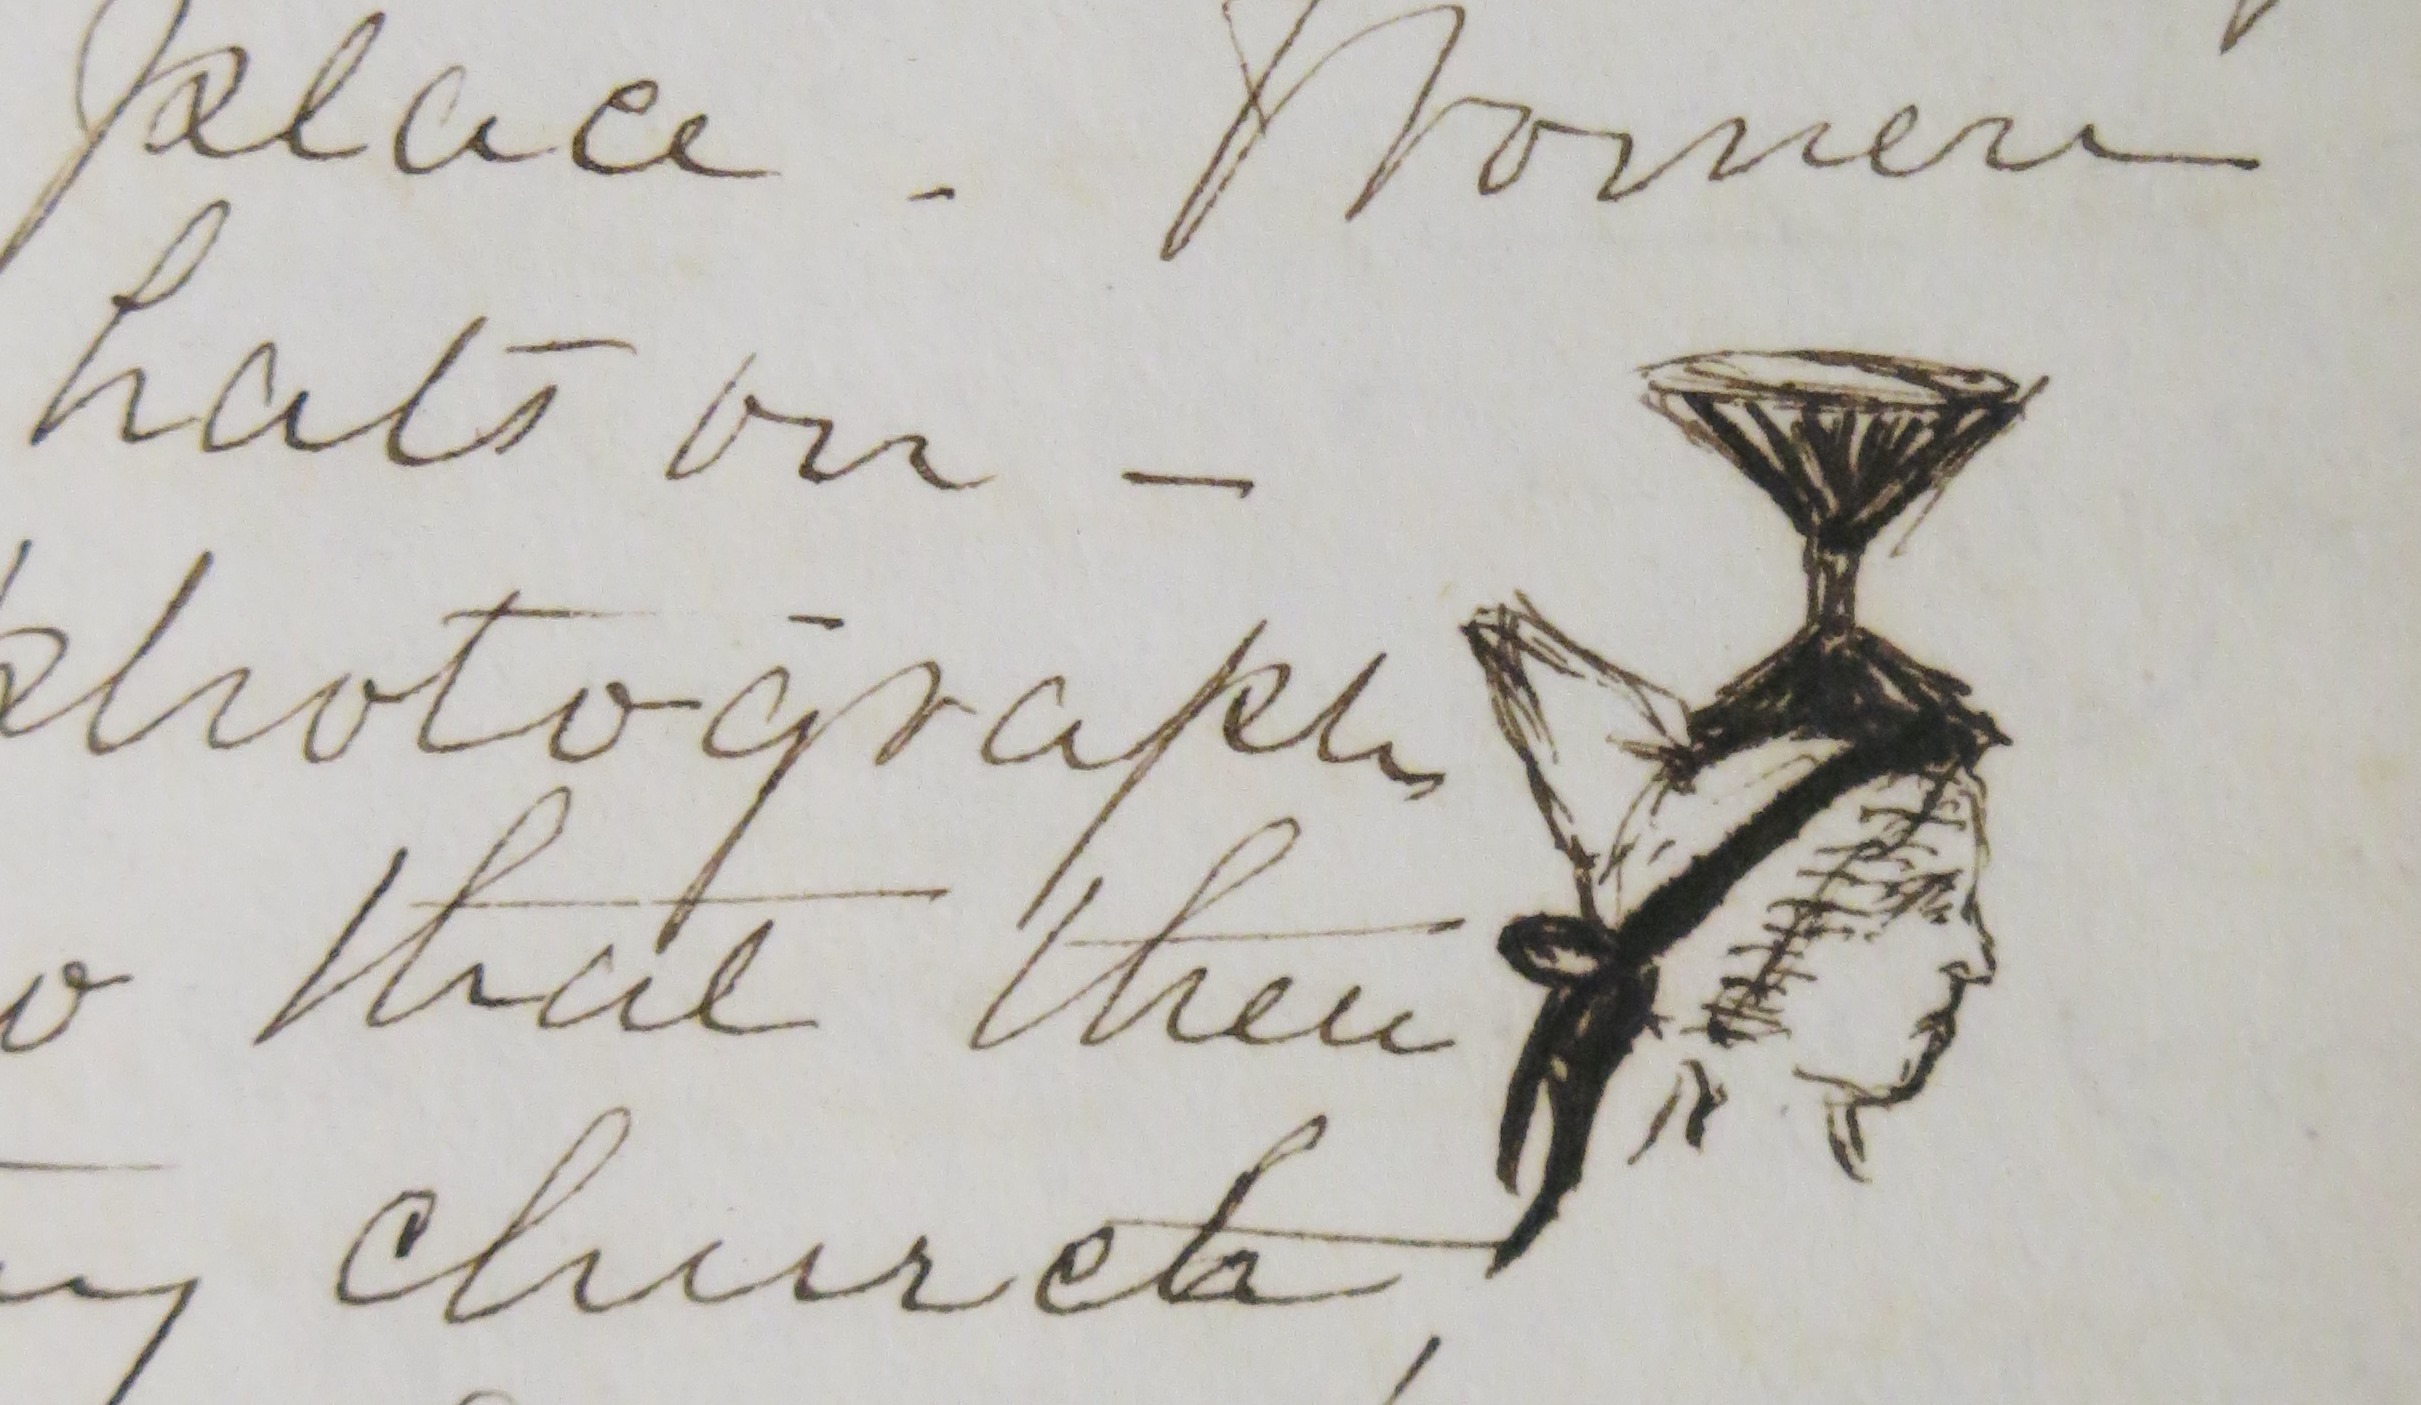 place - Women
hats on -
photographs
that then
church,